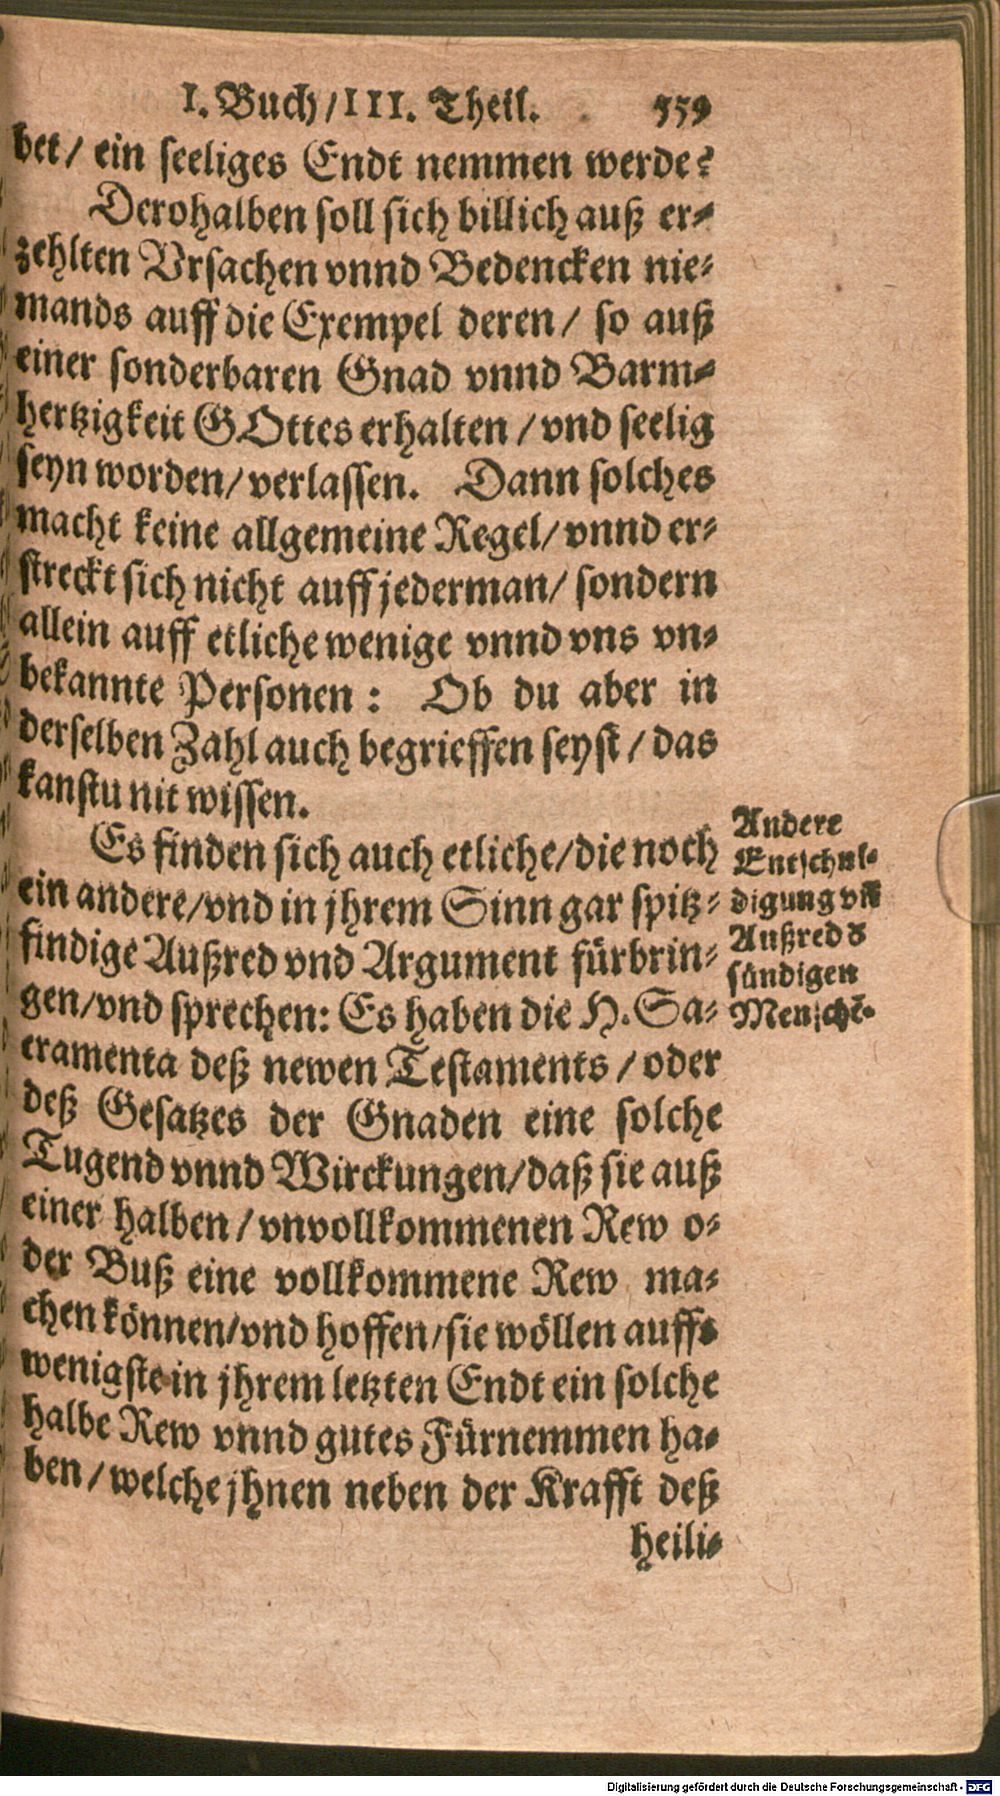 I. Buch / III. Theil. 559
bet / ein seeliges Endt nemmen werde?
Derohalben soll sich billich auß er-
zehlten Vrsachen vnnd Bedencken nie-
mands auff die Exempel deren / so auß
einer sonderbaren Gnad vnnd Barm-
hertzigkeit GOttes erhalten / vnd seelig
seyn worden / verlassen. Dann solches
macht keine allgemeine Regel / vnnd er-
streckt sich nicht auff jederman / sondern
allein auff etliche wenige vnnd vns vn-
bekannte Personen : Ob du aber in
derselben Zahl auch begrieffen seyst / das
kanstu nit wissen.
Es finden sich auch etliche / die noch
ein andere / vnd in jhrem Sinn gar spitz-
findige Außred vnd Argument fürbrin-
gen / vnd sprechen: Es haben die H. Sa-
cramenta deß newen Testaments / oder
deß Gesatzes der Gnaden eine solche
Tugend vnnd Wirckungen / daß sie auß
einer halben / vnvollkommenen Rew o-
der Buß eine vollkommene Rew ma-
chen können / vnd hoffen / sie wöllen auffs
wenigste in jhrem letzten Endt ein solche
halbe Rew vnnd gutes Fürnemmen ha-
ben / welche jhnen neben der Krafft deß
heili-
Andere
Entschul-
digung vñ
Außred ð
sündigen
Menschẽ.
Digitalisierung gefördert durch die Deutsche Forschungsgemeinschaft - DFG